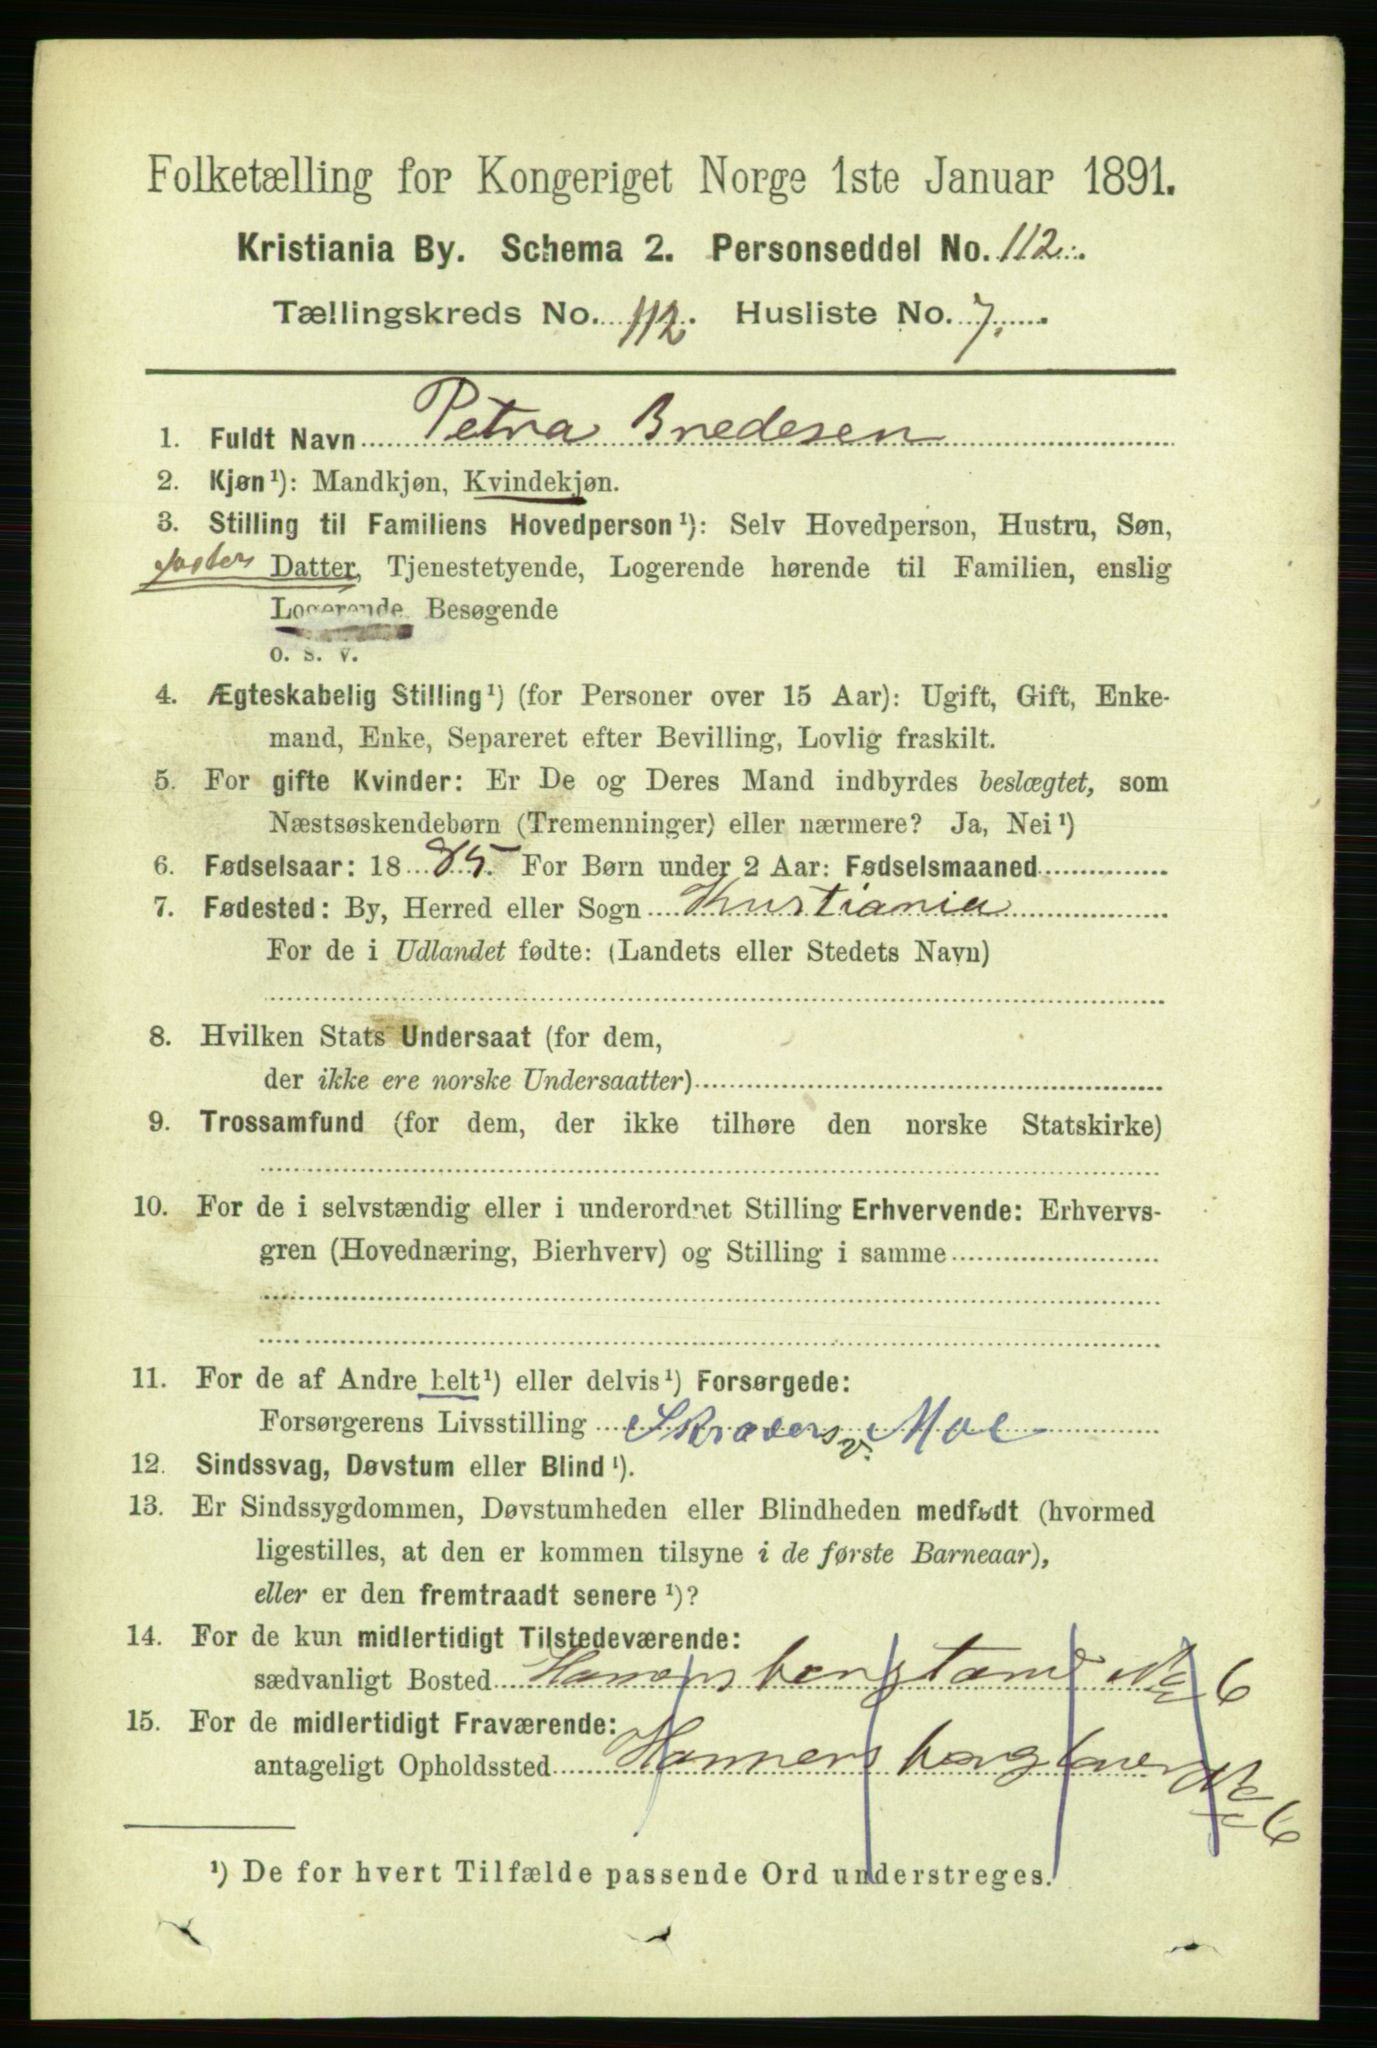 Folketælling for Kongeriget Norge 1ste Januar 1891.
Kristiania By. Schema 2. Personseddel No. 112.
Tællingskreds No. 112. Husliste No. 7.
1. Fuldt Navn Petra Bredesen
2. Kjøn¹): Mandkjøn, Kvindekjøn.
3. Stilling til Familiens Hovedperson¹): Selv Hovedperson, Hustru, Søn,
foster Datter, Tjenestetyende, Logerende hørende til Familien, enslig
Logerende, Besøgende
o. s. v.
4. Ægteskabelig Stilling¹) (for Personer over 15 Aar): Ugift, Gift, Enke-
mand, Enke, Separeret efter Bevilling, Lovlig fraskilt.
5. For gifte Kvinder: Er De og Deres Mand indbyrdes beslægtet, som
Næstsøskendebørn (Tremenninger) eller nærmere? Ja, Nei¹)
6. Fødselsaar: 1885. For Børn under 2 Aar: Fødselsmaaned
7. Fødested: By, Herred eller Sogn Kristiania
For de i Udlandet fødte: (Landets eller Stedets Navn)
8. Hvilken Stats Undersaat (for dem,
der ikke ere norske Undersaatter)
9. Trossamfund (for dem, der ikke tilhøre den norske Statskirke)
10. For de i selvstændig eller i underordnet Stilling Erhvervende: Erhvervs-
gren (Hovednæring, Bierhverv) og Stilling i samme
11. For de af Andre helt¹) eller delvis¹) Forsørgede:
Forsørgerens Livsstilling Skræders v. Moe
12. Sindssvag, Døvstum eller Blind¹).
13. Er Sindssygdommen, Døvstumheden eller Blindheden medfødt (hvormed
ligestilles, at den er kommen tilsyne i de første Barneaar),
eller er den fremtraadt senere¹)?
14. For de kun midlertidigt Tilstedeværende:
sædvanligt Bosted No 6
15. For de midlertidigt Fraværende:
antageligt Opholdssted No 6
¹) De for hvert Tilfælde passende Ord understreges.